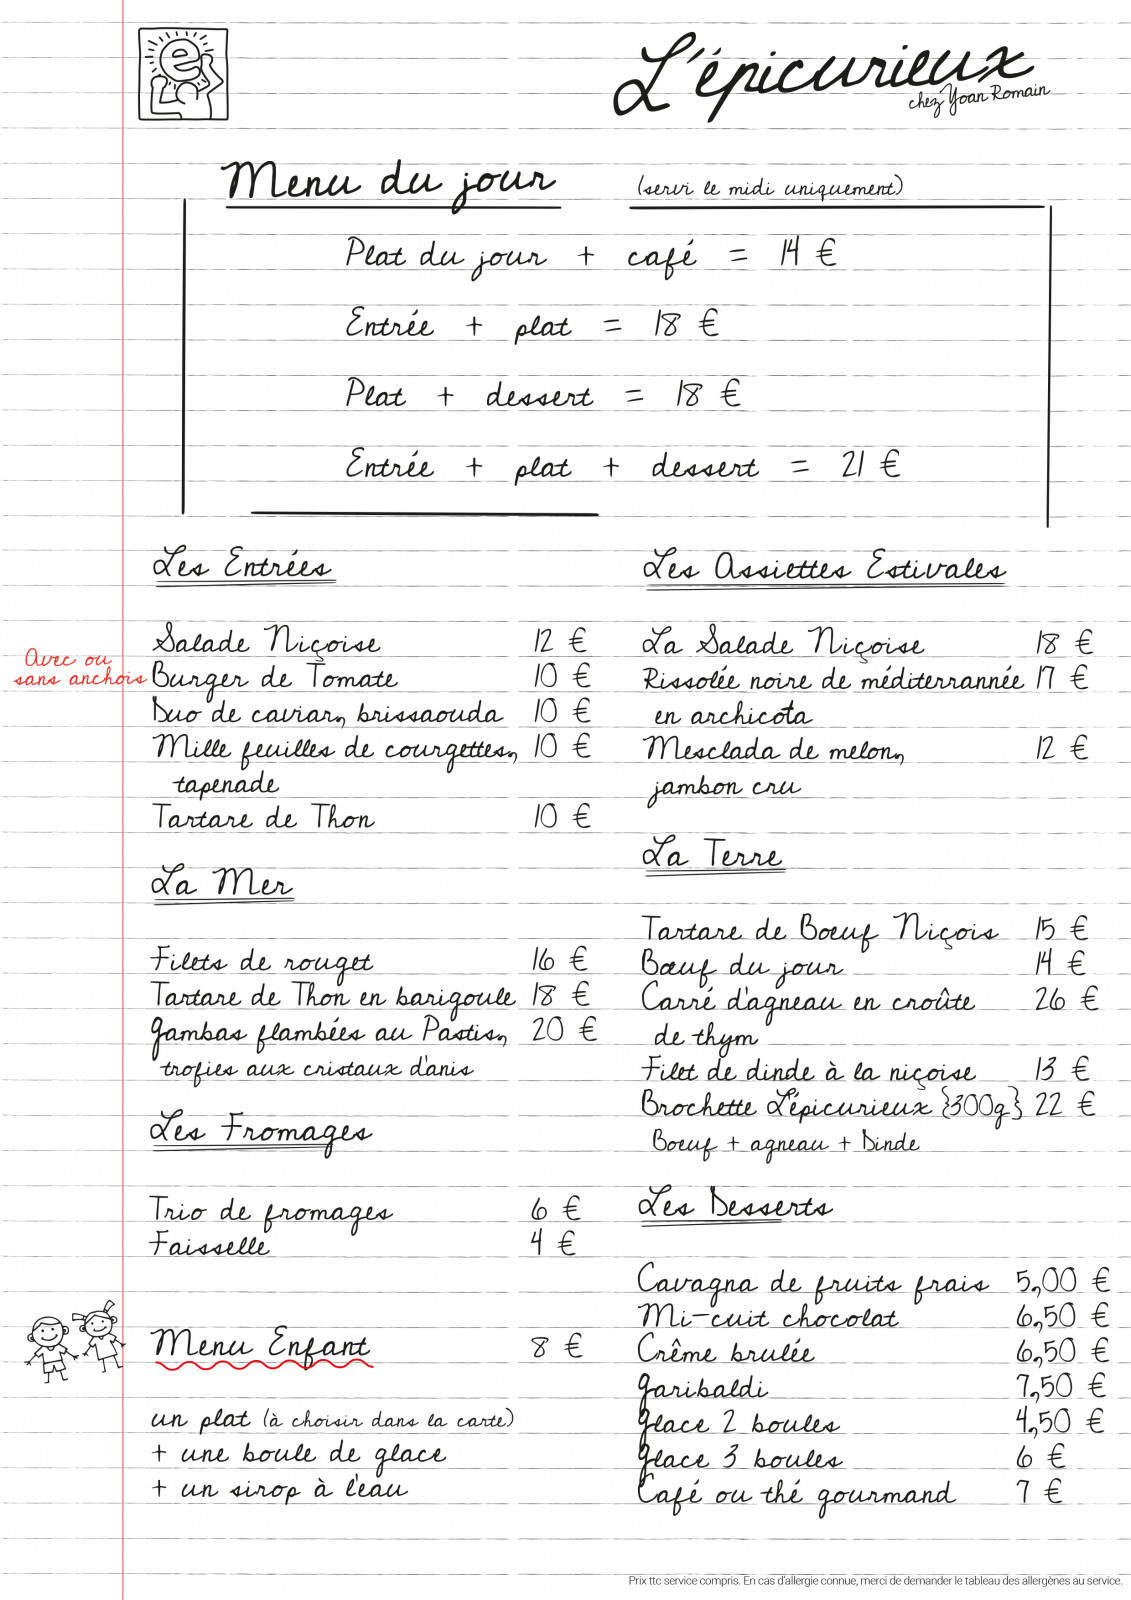 e
L'épicurieux
chez Yoan Romain
Menu du jour (servi le midi uniquement)
Plat du jour + café = 14 €
Entrée + plat = 18 €
Plat + dessert = 18 €
Entrée + plat + dessert = 21 €
Les Entrées
Avec ou
sans anchois
Salade Niçoise 12 €
Burger de Tomate 10 €
Duo de caviar, brissaouda 10 €
Mille feuilles de courgettes, 10 €
tapenade
Tartare de Thon 10 €
La Mer
Filets de rouget 16 €
Tartare de Thon en barigoule 18 €
Gambas flambées au Pastis, 20 €
trofies aux cristaux d'anis
Les Fromages
Trio de fromages 6 €
Faisselle 4 €
Menu Enfant 8 €
un plat (à choisir dans la carte)
+ une boule de glace
+ un sirop à l'eau
Les Assiettes Estivales
La Salade Niçoise 18 €
Rissolée noire de méditerrannée 17 €
en archicota
Mesclada de melon, 12 €
jambon cru
La Terre
Tartare de Boeuf Niçois 15 €
Bœuf du jour 14 €
Carré d'agneau en croûte 26 €
de thym
Filet de dinde à la niçoise 13 €
Brochette L'épicurieux {300g} 22 €
Boeuf + agneau + Dinde
Les Desserts
Cavagna de fruits frais 5,00 €
Mi-cuit chocolat 6,50 €
Crême brulée 6,50 €
Garibaldi 7,50 €
Glace 2 boules 4,50 €
Glace 3 boules 6 €
Café ou thé gourmand 7 €
Prix ttc service compris. En cas d'allergie connue, merci de demander le tableau des allergènes au service.